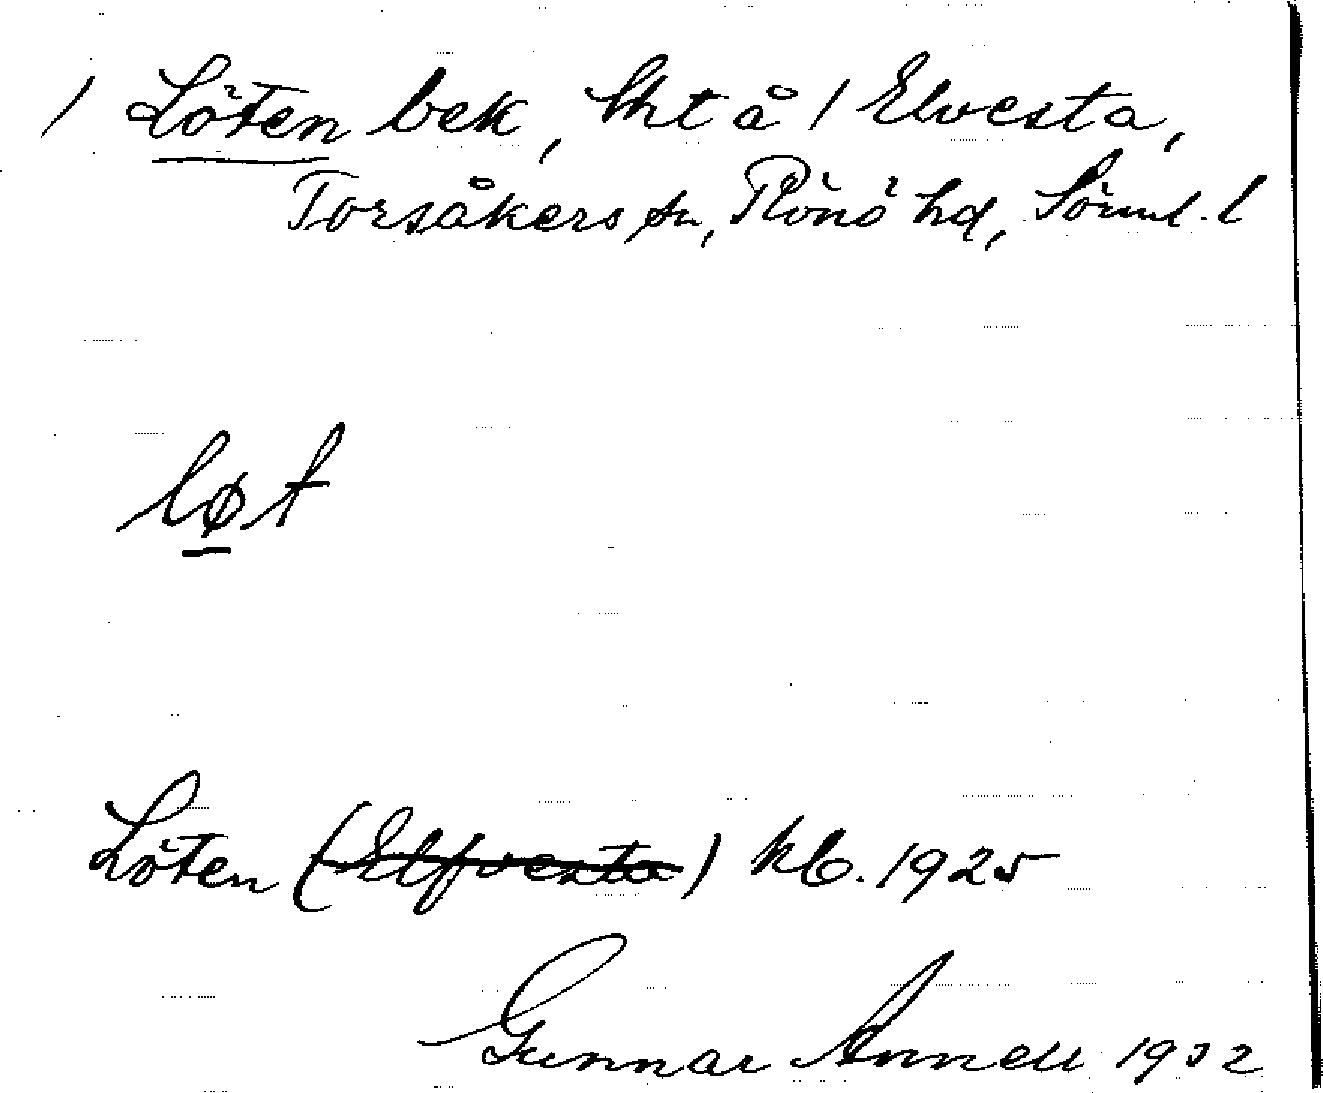 / Löten bek, lht å / Elvesta,
Torsåkers sn, Rönö hd, Söruml. l
løt
Löten (Elfvesta) kb. 1925
Gunnar Annell 1932